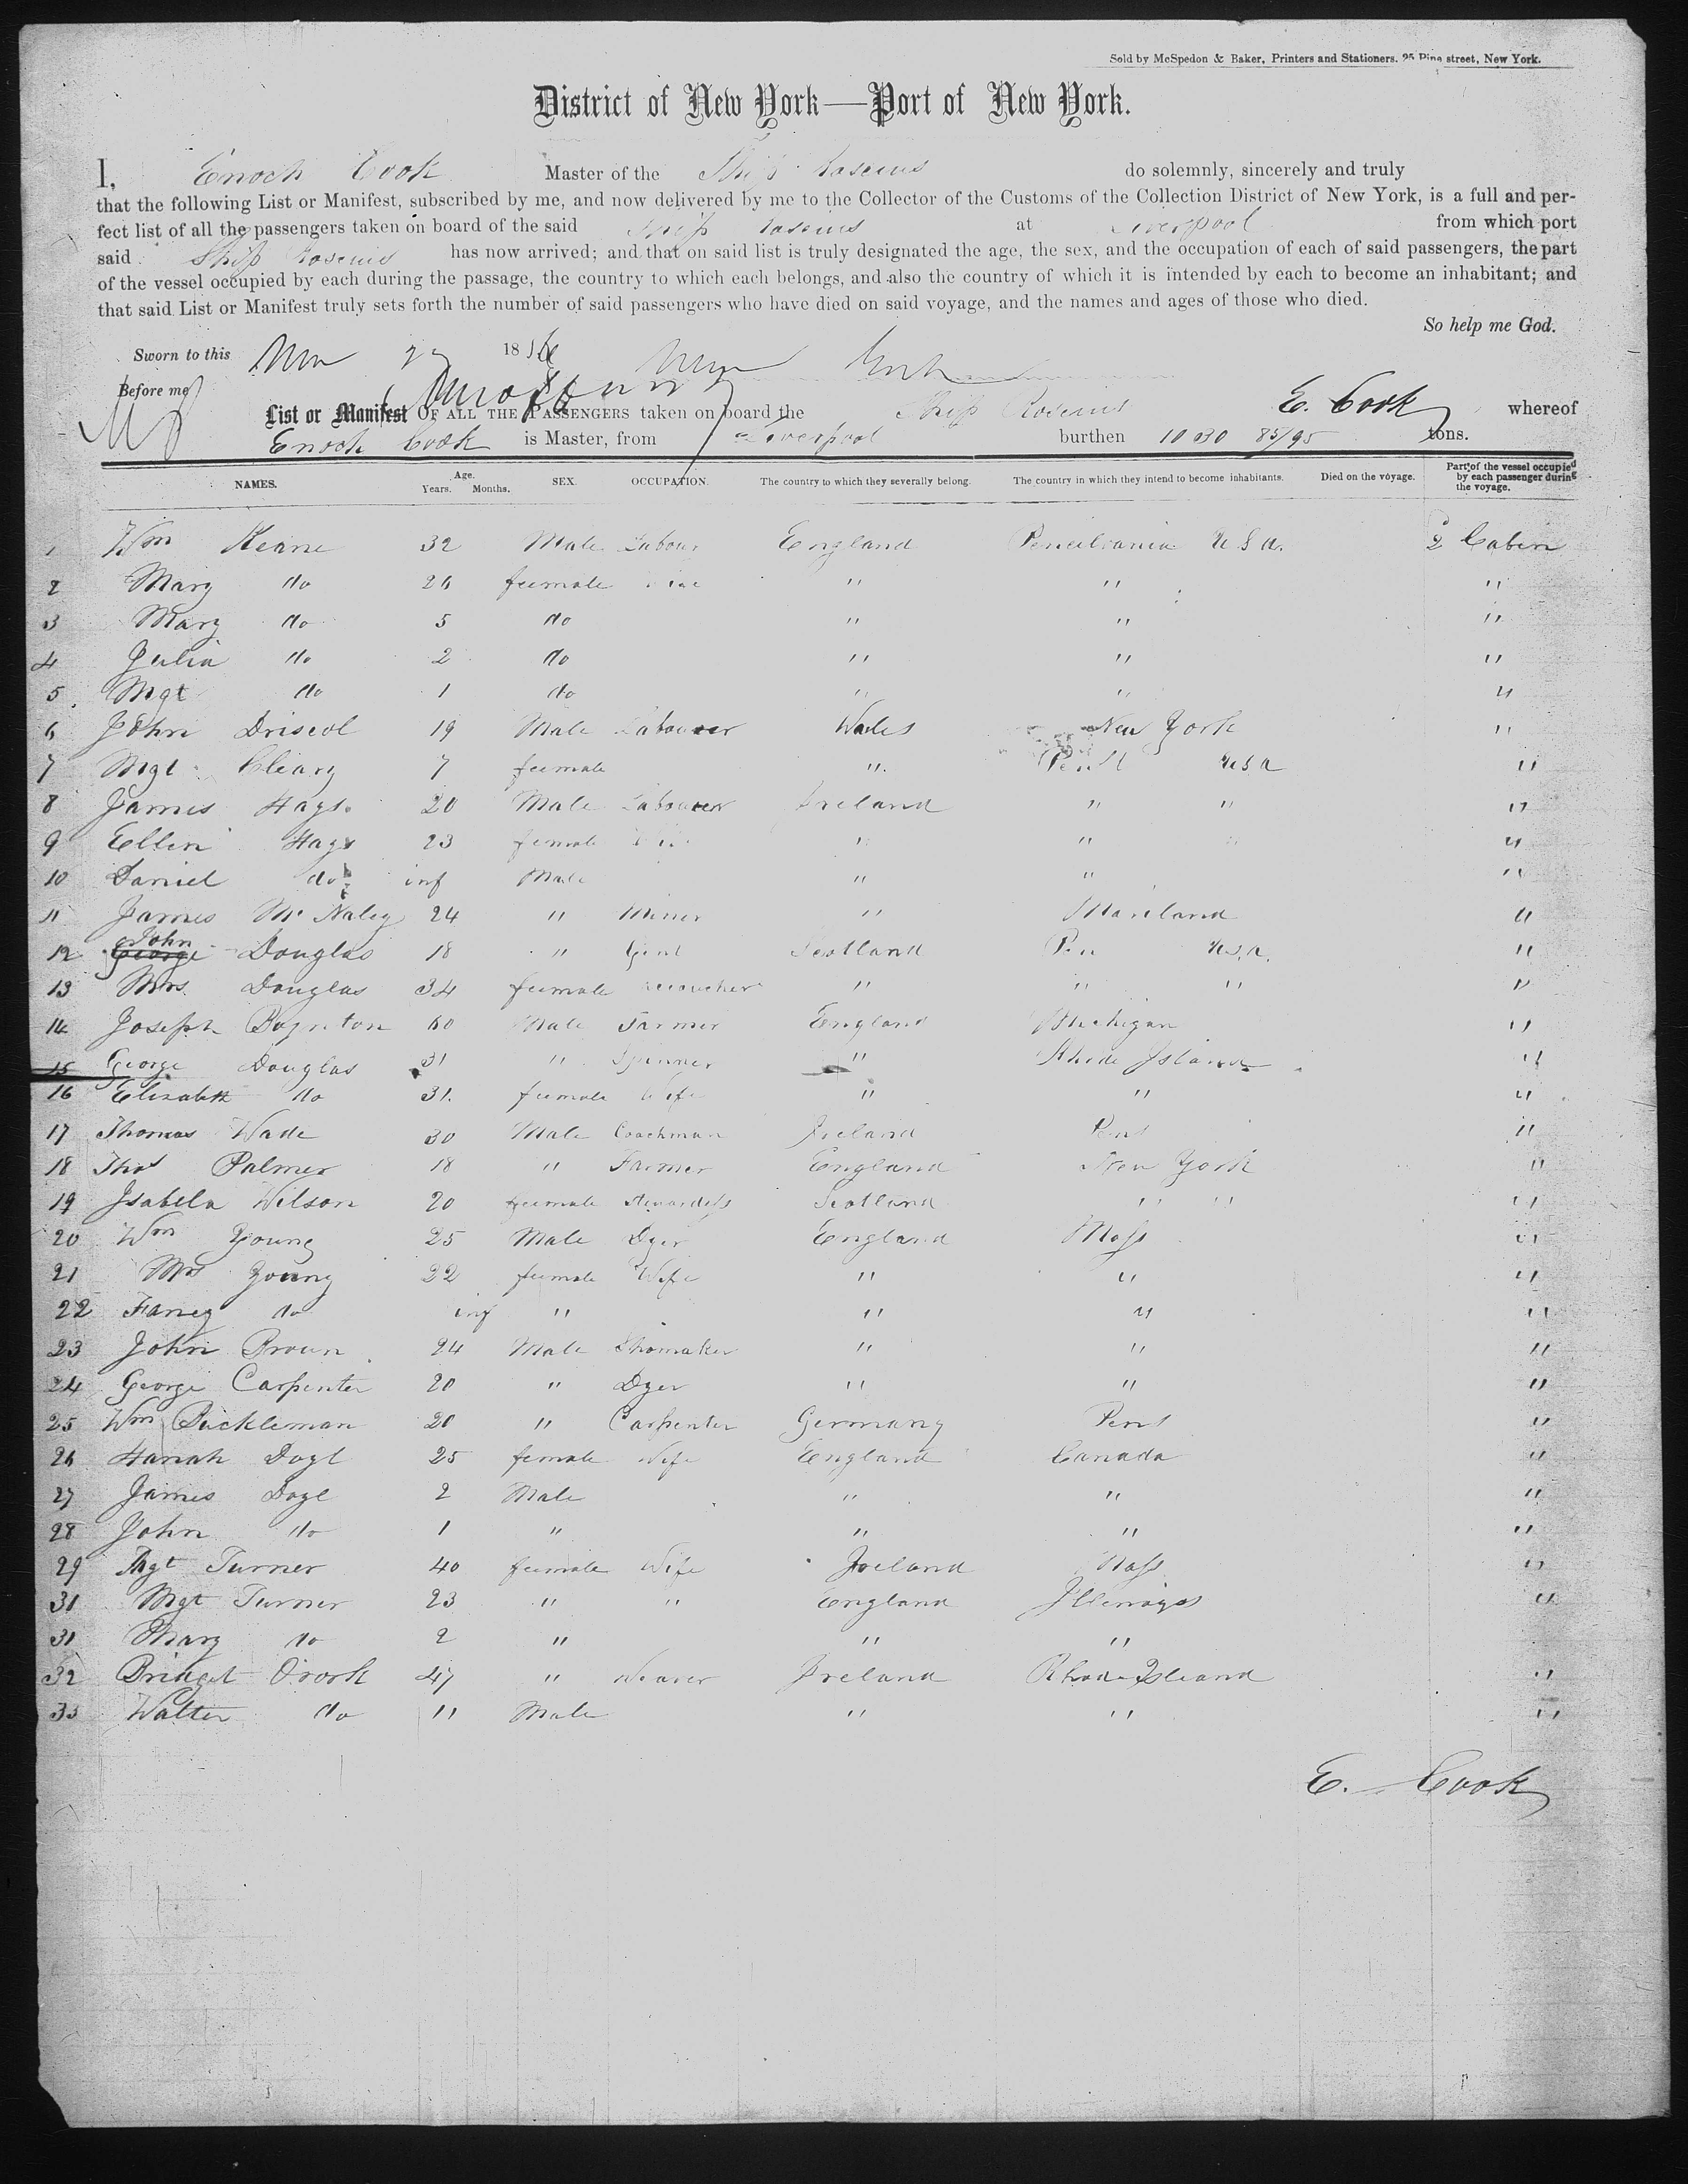 Sold by McSpedon & Baker, Printers and Stationers. 25 Pine street, New York.
District of New York—Port of New York.
I, Enoch Cook Master of the Ship Roscius do solemnly, sincerely and truly
that the following List or Manifest, subscribed by me, and now delivered by me to the Collector of the Customs of the Collection District of New York, is a full and per-
fect list of all the passengers taken on board of the said Ship Roscius at Liverpool from which port
said Ship Roscius has now arrived; and that on said list is truly designated the age, the sex, and the occupation of each of said passengers, the part
of the vessel occupied by each during the passage, the country to which each belongs, and also the country of which it is intended by each to become an inhabitant; and
that said List or Manifest truly sets forth the number of said passengers who have died on said voyage, and the names and ages of those who died.
So help me God.
Sworn to this Nov 27 18
Before me
E. Cook
List or Manifest OF ALL THE PASSENGERS taken on board the Ship Roscius whereof
Enoch Cook is Master, from Liverpool burthen 1030 85/95 tons.
NAMES. Age. Years. Months. SEX. OCCUPATION. The country to which they severally belong. The country in which they intend to become inhabitants. Died on the voyage. Part of the vessel occupied by each passenger during the voyage.
1 Wm Keane 32 Male Labour England Pencilvania U S a. 2 Cabin
2 Mary do 26 feemale " " "
3 Mary do 5 do " " "
4 Julia do 2 do " " "
5 Mgt do 1 do " " "
6 John Driscol 19 Male Labourer Wales New York "
7 Mgt Cleary 7 feemale " U S A "
8 James Hays 20 Male Labourer Ireland " " "
9 Ellen Hays 23 female " " " "
10 Daniel do inf Male " " "
11 James Mc Naley 24 " Miner " Mariland "
12 George John Douglas 18 " Gent Scotland Pen U.S.A. "
13 Mrs Douglas 34 feemale " " " "
14 Joseph Boynton 60 Male Farmer England Michigan "
15 George Douglas 31 " Spinner " Rhode Island "
16 Elizabeth do 31. feemale Wife " " "
17 Thomas Wade 30 Male Coachman Ireland Pens "
18 Thos Palmer 18 " Farmer England New York "
19 Isabela Wilson 20 feemale Stewardess Scotland " " "
20 Wm Young 25 Male Dyer England Mass "
21 Mrs Young 22 feemale Wife " " "
22 Faney do inf " " " "
23 John Broun 24 Male Shomaker " " "
24 George Carpenter 20 " Dyer " " "
25 Wm Buckleman 20 " Carpenter Germany Pens "
26 Hanah Doyl 25 female Wife England Canada "
27 James Doyl 2 Male " " "
28 John do 1 " " " "
29 Mgt Turner 40 feemale Wife Ireland Mass "
31 Mgt Turner 23 " " England "
31 Mary do 2 " " "
32 Bridget O'rork 47 " Weaver Ireland Rhode Isleand "
33 Walter do 11 Male " " "
E. Cook